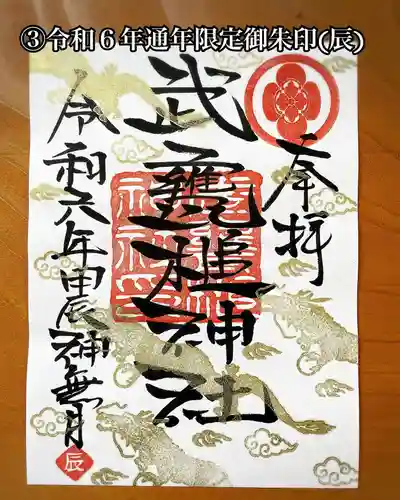 ③令和６年通年限定御朱印(辰)
奉拝
武甕槌神社
令和六年甲辰神無月
辰